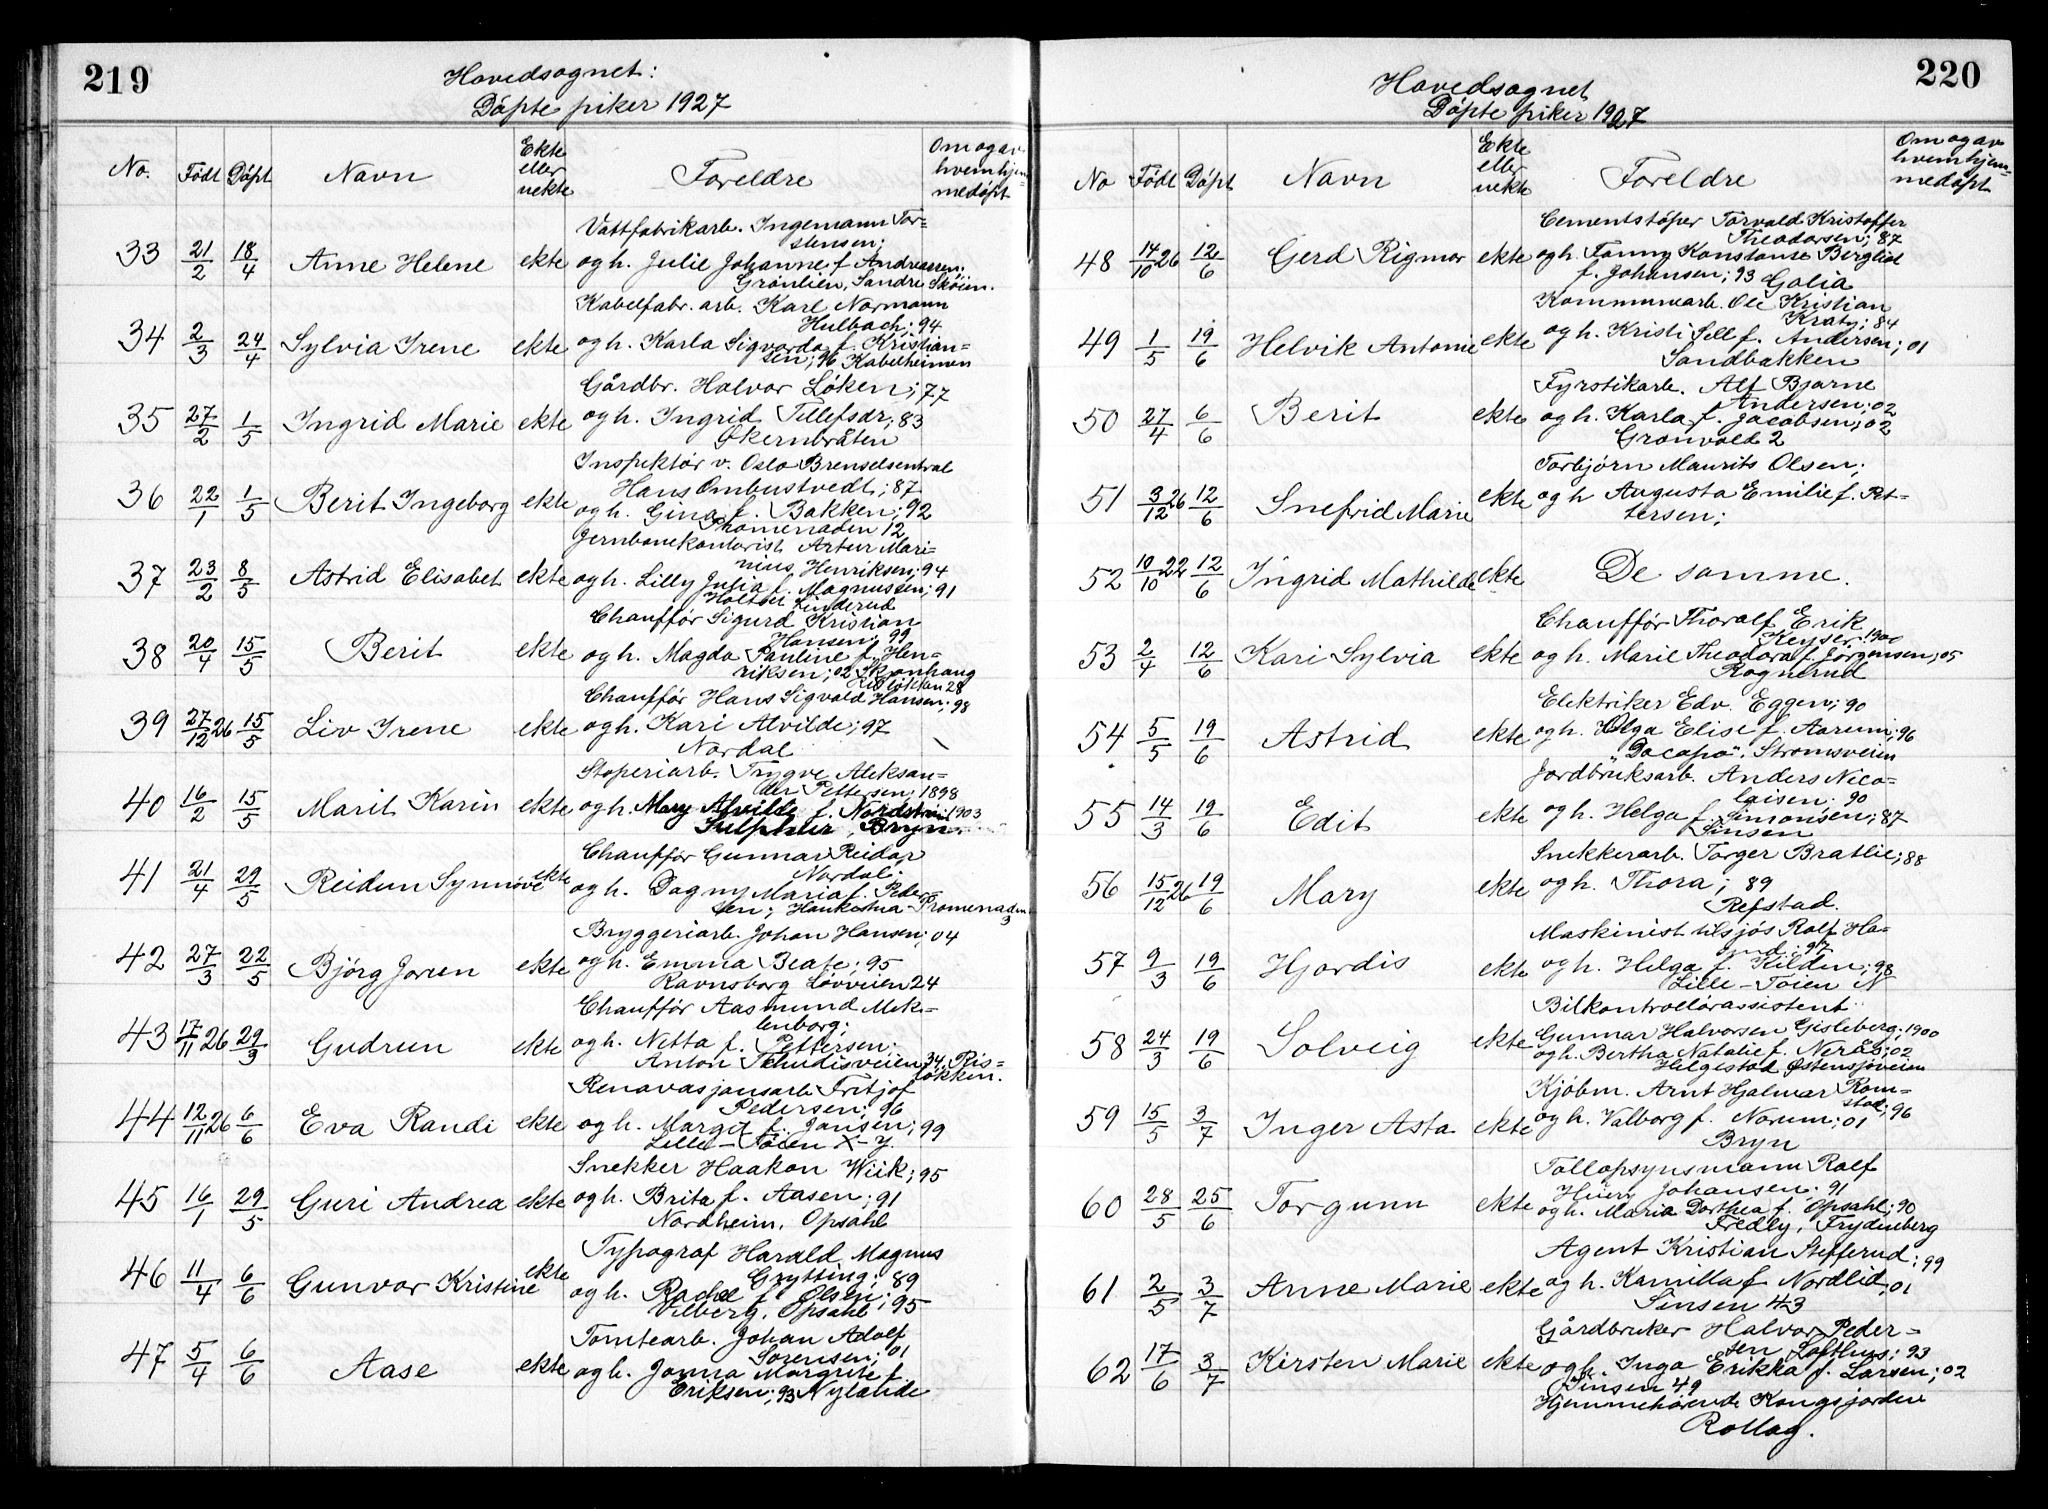 219
Hovedsognet:
Döpte piker 1927
No.
Födt
Döpt
Navn
Ekte
eller
uekte
Foreldre
Om og av
hvem hjem-
medöpt
33 21/2 18/4 Anne Helene ekte
Vattfabrikarb. Ingemann Tor-
stensen;
og h. Julie Johanne f. Andreassen;
Grönlien, Søndre Skøien.
34 2/3 24/4 Sylvia Irene ekte
Kabelfabr. arb. Karl Normann
Hulbach; 94
og h. Karla Sigvarda f. Kristian-
sen; 96 Kabelheimen
35 27/2 1/5 Ingrid Marie ekte
Gårdbr. Halvor Löken; 77
og h. Ingrid Tellefsdr; 83
Økernbråten
36 22/1 1/5 Berit Ingeborg ekte
Inspektör v. Oslo Brenselsentral
Hans Ombustvedt; 87
og h. Gina f. Bakken; 92
Promenaden 12
37 23/2 8/5 Astrid Elisabet ekte
Jernbanekontorist Artur Mari-
nius Henriksen; 94
og h. Lilly Julia f. Magnussen; 91
Holthei Linderud
38 20/4 15/5 Berit ekte
Chaufför Sigurd Kristian
Hansen; 99
og h. Magda Pauline f. Hen-
riksen; 02 Skjonhaug
Risløkken 28
39 27/12 26 15/5 Liv Irene ekte
Chaufför Hans Sigvald Hansen; 98
og h. Kari Alvilde; 97
Nordal
40 16/2 15/5 Marit Karin ekte
Stoperiarb. Trygve Aleksan-
der Pettersen; 1898
og h. Mary Alvilde f. Nordström 1903
Bryn
41 21/4 29/5 Reidun Synnöve ekte
Chaufför Gunnar Reidar
Nordal;
og h. Dagny Maria f. Peder-
sen; Haukelia-Promenaden
3
42 27/3 22/5 Björg Joren ekte
Bryggeriarb. Johan Hansen; 04
og h. Emma Beate; 95
Ravnsborg Lövveien 24
43 17/11 26 29/3 Gudrun ekte
Chaufför Aasmund Mek-
lenborg;
og h. Netta f. Pettersen;
Anton Schudisveien 34, Ris-
lökken.
44 12/11 26 6/6 Eva Randi ekte
Renovasjonsarb Fritjof
Pedersen; 96
og h. Margit f. Jansen; 99
Lille-Töien X-Y.
45 16/1 29/5 Guri Andrea ekte
Snekker Haakon Wiik; 95
og h. Brita f. Aasen; 91
Nordheim, Opsahl
46 11/4 6/6 Gunvor Kristine ekte
Typograf Harald Magnus
Grytting; 89
og h. Rachel f. Olsen;
Vilberg, Opsahl; 95
47 5/4 6/6 Aase ekte
Tomtearb. Johan Adolf
Sorensen; 01
og h. Jonna Margrete f.
Eriksen; 93 Nylænde
220
Hovedsognet
Döpte piker 1927
No
Födt
Döpt
Navn
Ekte
eller
uekte
Foreldre
Om og av
hvem hjem-
medöpt
48 14/10 26 12/6 Gerd Rigmor ekte
Cementstöper Torvald Kristoffer
Theodorsen; 87
og h. Fanny Konstanse Bergliot
f. Johansen; 93 Golia
49 1/5 19/6 Helvik Antonie ekte
Kommunearb. Ole Kristian
Kraty; 84
og h. Kristi Sell f. Andersen; 01
Sandbakken
50 27/4 6/6 Berit ekte
Fyrstikarb. Alf Bjarne
Andersen; 02
og h. Karla f. Jacobsen; 02
Gronvold 2
51 3/12 26 12/6 Snefrid Marie ekte
Torbjörn Maurits Olsen;
og h Augusta Emilie f. Pet-
tersen;
52 10/10 22 12/6 Ingrid Mathilde ekte
De samme.
53 2/4 12/6 Kari Sylvia ekte
Chaufför Thoralf Erik
Keyser 1900
og h. Marie Theodora f. Jörgensen; 05
Rognerud
54 5/5 19/6 Astrid ekte
Elektriker Edv. Eggen; 90
og h. Olga Elise f. Aarum; 96
"Dacapo", Stromsveien
55 14/3 19/6 Edit ekte
Jordbruksarb. Anders Nico-
laisen; 90
og h. Helga f. Simonsen; 87
Sinsen
56 15/12 26 19/6 Mary ekte
Snekkerarb. Torger Bratlie; 88
og h. Thora; 89
Refstad.
57 9/3 19/6 Hjordis ekte
Maskinist tilsjös Rolf Ha-
gnd; 97
og h. Helga f. Kilden; 98
Lille-Töien N
58 24/3 19/6 Solveig ekte
Bilkontrollörassistent
Gunnar Halvorsen Gisleberg; 1900
og h. Bertha Natalie f. Nerås; 02
Helgestad Østensjöveien
59 15/5 3/7 Inger Asta ekte
Kjöbm. Arnt Hjalmar Rom-
stad; 96
og h. Valborg f. Norum; 01
Bryn
60 28/5 25/6 Torgunn ekte
Tollopsynsmann Rolf
Henry Johansen; 91
og h. Maria Dorthea f. Opsahl; 90
Fredly, Frydenberg
61 2/5 3/7 Anne Marie ekte
Agent Kristian Stefferud; 99
og h. Kamilla f. Nordlid; 01
Sinsen 43
62 17/6 3/7 Kirsten Marie ekte
Gårdbruker Halvor Peder-
sen Lofthus; 93
og h. Inga Erikka f. Larsen; 02
Sinsen 49
Hjemmehörende Kongsjorden
Rollag.